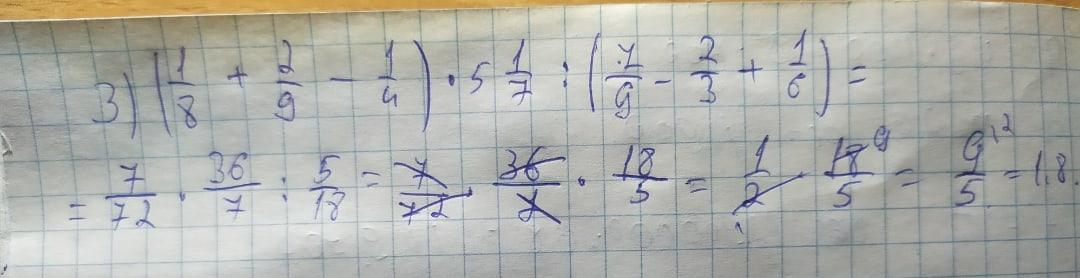 3) (1/8 + 2/9 - 1/4) · 5 1/7 : (7/9 - 2/3 + 1/6) =
= 7/72 · 36/7 : 5/18 = 7/72 · 36/7 · 18/5 = 1/2 · 18/5 9 = 9/5 = 1,8.